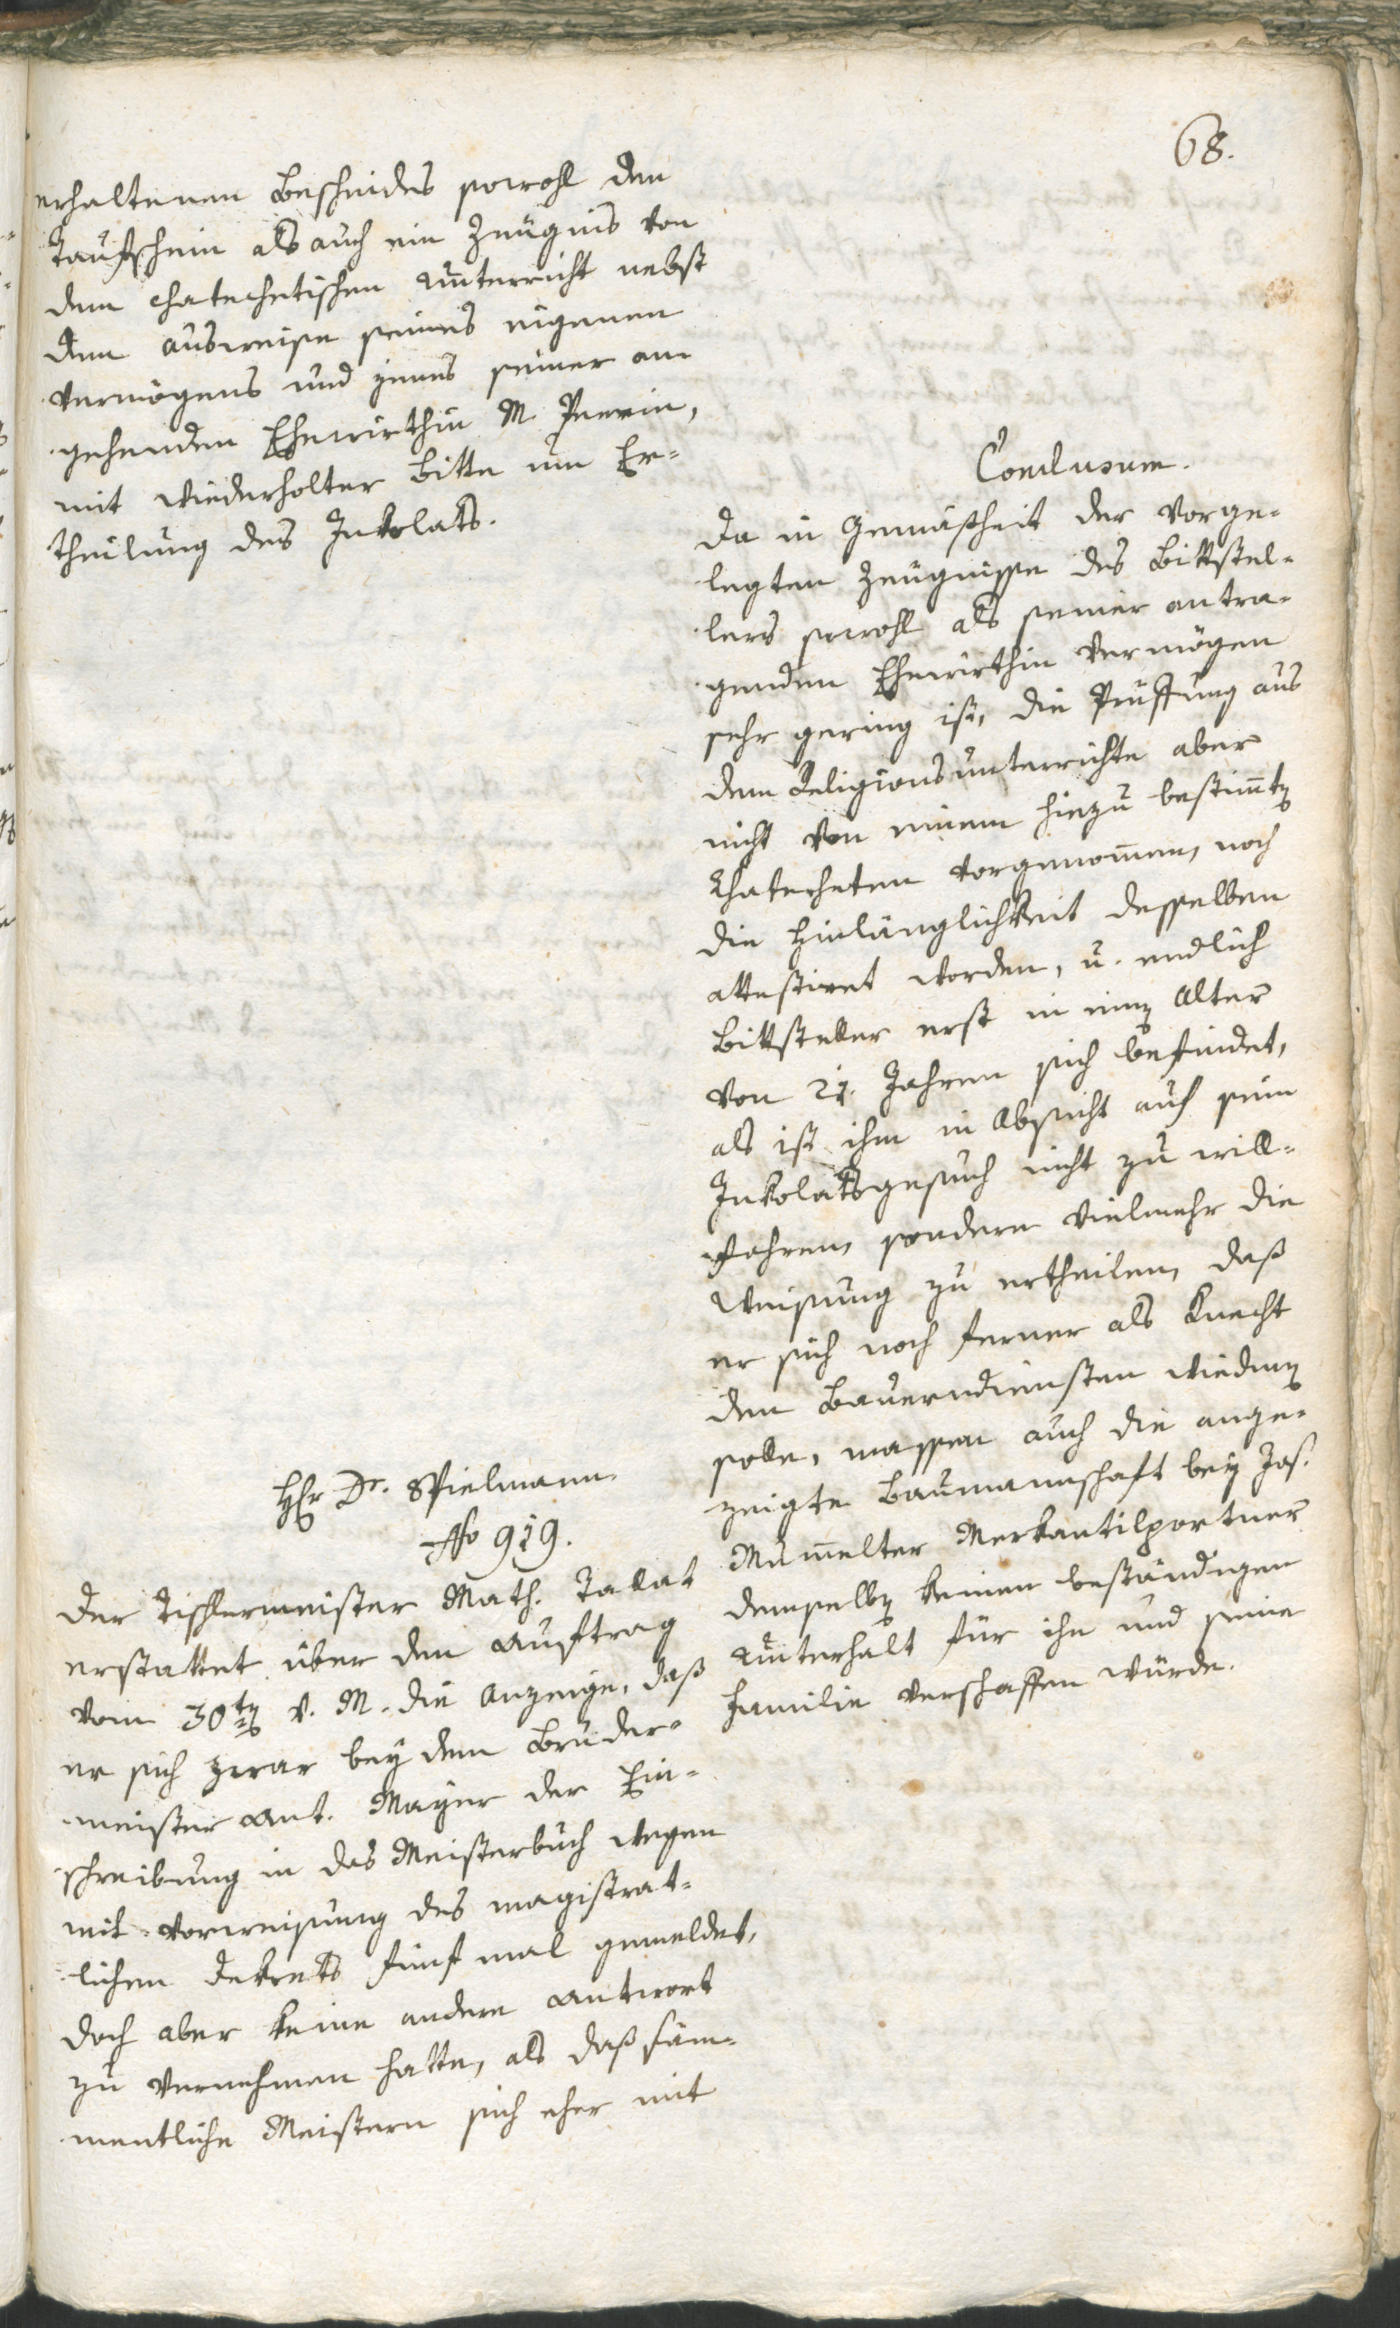 68.
erhaltenen Bescheides sowohl den
Taufschein als auch ein Zeugnis von
dem chatechetischen Unterricht nebst
dem ausweise seines eigenen
vermögens und jenes seiner an
gehenden Ehewirthin M.
mit wiederholter Bitte um Er-
theilung des Inkolats.
Conclusum.
Da in Gemäßheit der vorge-
legten Zeugnisse des Bittstel-
lers sowohl als seiner antra-
genden Ehewirthin vermögen
sehr gering ist, die Prüffung aus
dem Religionsunterrichte aber
nicht von einem hiezu bestimten
Chatecheten vorgenommen, noch
die Hinlänglichkeit desselben
attestiret worden, u. endlich
Bittsteller erst in einem Alter
von 21. Jahren sich befindet,
als ist ihm in Absicht auf sein
Inkolatsgesuch nicht zu will-
fahren, sondern vielmehr die
Weisung zu ertheilen, daß
er sich noch ferner als Knecht
den Bauerndiensten wiedmen
solle, massen auch die ange-
zeigte Baumannschaft bey Jos.
Mumelter Merkantilportner
demselben keinen beständigen
Unterhalt für ihn und seine
Familie verschaffen würde.
Hr Dr. Spielmann.
No 919.
Der Tischlermeister Math. Tallat
erstattet über den Auftrag
vom 30ten v. M. die Anzeige, daß
er sich zwar bey dem Bruder-
meister Ant. Mayer der Ein-
schreibung in das Meisterbuch wegen
mit vorweisung des magistrat-
lichen Dekrets fünf mal gemeldet,
doch aber keine andere Antwort
zu vernehmen hatte, als daß säm-
mentliche Meistern sich eher mit